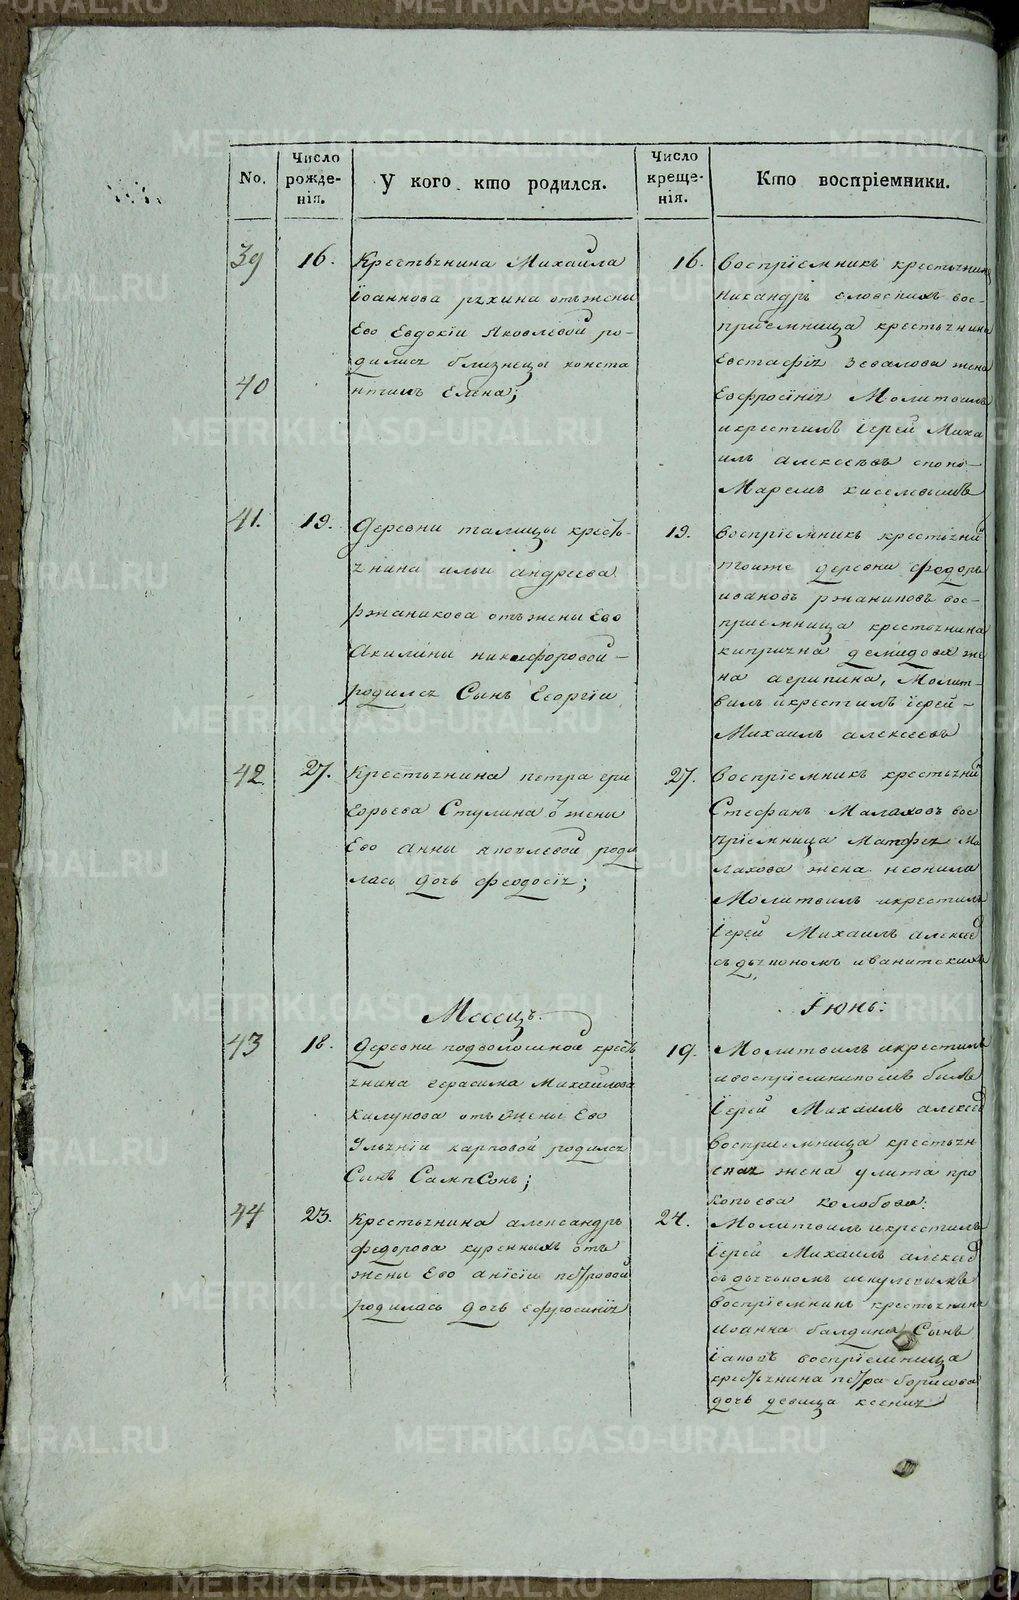 No.
Число рожде-нія.
У кого кто родился.
Число креще-нія.
Кто воспріемники.
39
16.
Крестьянина Михаила
Іоаннова рѣхина отъ жены
Ево Евдокіи Яковлевой ро-
дились близнецы конста
40
нтинъ Елена;
16.
Воспріемникъ крестьянинъ
Никандръ вос-
пріемница крестьянина
Евстафія жена
Евфросинія Молитвилъ
и крестилъ Іерей Миха
илъ алексѣевъ съ поно-
Маремъ киселевымъ
41.
19.
Деревни талицы кресть-
янина ильи андреева
ржаникова отъ жены Ево
Акилины никифоровой
родился Сынъ Георгіи
19.
Воспріемникъ крестьянинъ
тоиже деревни федоръ
ивановъ ржаниковъ вос-
приемница крестьянина
демидова же
на агрипина, Молит-
вилъ и крестилъ Іерей
Михаилъ алексеевъ
42
27.
Крестьянина петра гри
горьева Стулина ѿ жены
Ево анны яковлевой роди
лась дочь феодосія;
27.
Воспріемникъ крестьянинъ
Стефанъ Малаховъ вос
пріемница Матфея Ма
лахова жена неонила
Молитвилъ и крестилъ
Іерей Михаилъ алексеев
съ дьякономъ иванитскимъ
Месецъ
Іюнь:
43
18.
Деревни подволошной кресть
янина герасима Михайлова
килунова отъ жены Ево
Ульянии карповой родился
Сынъ СампСонъ;
19.
Молитвилъ и крестилъ
и воспріемникомъ былъ
Іерей Михаилъ алексеев
Воспріемница крестьян
ская жена улита про
копьева колобова:
44
23.
Крестьянина александръ
федорова куренныхъ отъ
жены Ево анісіи петровой
родилась дочь ефросинія
24.
Молитвилъ и крестилъ
Іерей Михаилъ алексеев
съ дьячькомъ
Воспріемникъ крестьянина
иоанна балдина Сынъ
Іаковъ воспріемница
крестьянина петра борисова
дочь девица ксения
METRIKI.GASO-URAL.RU